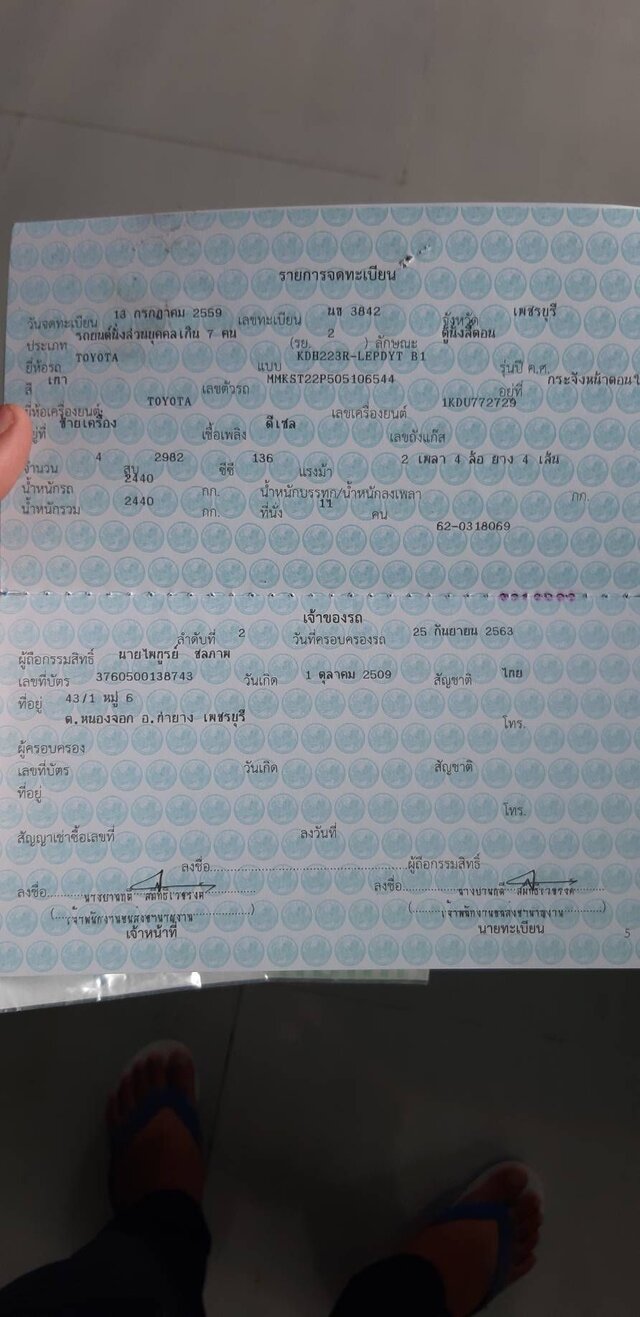 รายการจดทะเบียน
วันจดทะเบียน 13 กรกฎาคม 2559 เลขทะเบียน นข 3842 จังหวัด เพชรบุรี
ประเภท รถยนต์นั่งส่วนบุคคลเกิน 7 คน (รย. 2 ) ลักษณะ ตู้นั่งสี่ตอน
ยี่ห้อรถ TOYOTA แบบ KDH223R-LEPDYT B1 รุ่นปี ค.ศ.
สี เทา เลขตัวรถ MMKST22P505106544 อยู่ที่ กระจังหน้าตอนใ
ยี่ห้อเครื่องยนต์ TOYOTA เลขเครื่องยนต์ 1KDU772729
อยู่ที่ ซ้ายเครื่อง เชื้อเพลิง ดีเซล เลขถังแก๊ส
จำนวน 4 สูบ 2982 ซีซี 136 แรงม้า 2 เพลา 4 ล้อ ยาง 4 เส้น
น้ำหนักรถ 2440 กก. น้ำหนักบรรทุก/น้ำหนักลงเพลา กก.
น้ำหนักรวม 2440 กก. ที่นั่ง 11 คน
62-0318069
เจ้าของรถ
ลำดับที่ 2 วันที่ครอบครองรถ 25 กันยายน 2563
ผู้ถือกรรมสิทธิ์ นายไพฑูรย์ ชลภาพ
เลขที่บัตร 3760500138743 วันเกิด 1 ตุลาคม 2509 สัญชาติ ไทย
ที่อยู่ 43/1 หมู่ 6
ต.หนองจอก อ.ท่ายาง เพชรบุรี โทร.
ผู้ครอบครอง
เลขที่บัตร วันเกิด สัญชาติ
ที่อยู่
โทร.
สัญญาเช่าซื้อเลขที่ ลงวันที่
ลงชื่อ ผู้ถือกรรมสิทธิ์
ลงชื่อ ลงชื่อ
(เจ้าพนักงานขนส่งชำนาญงาน) (เจ้าพนักงานขนส่งชำนาญงาน)
เจ้าหน้าที่ นายทะเบียน
5